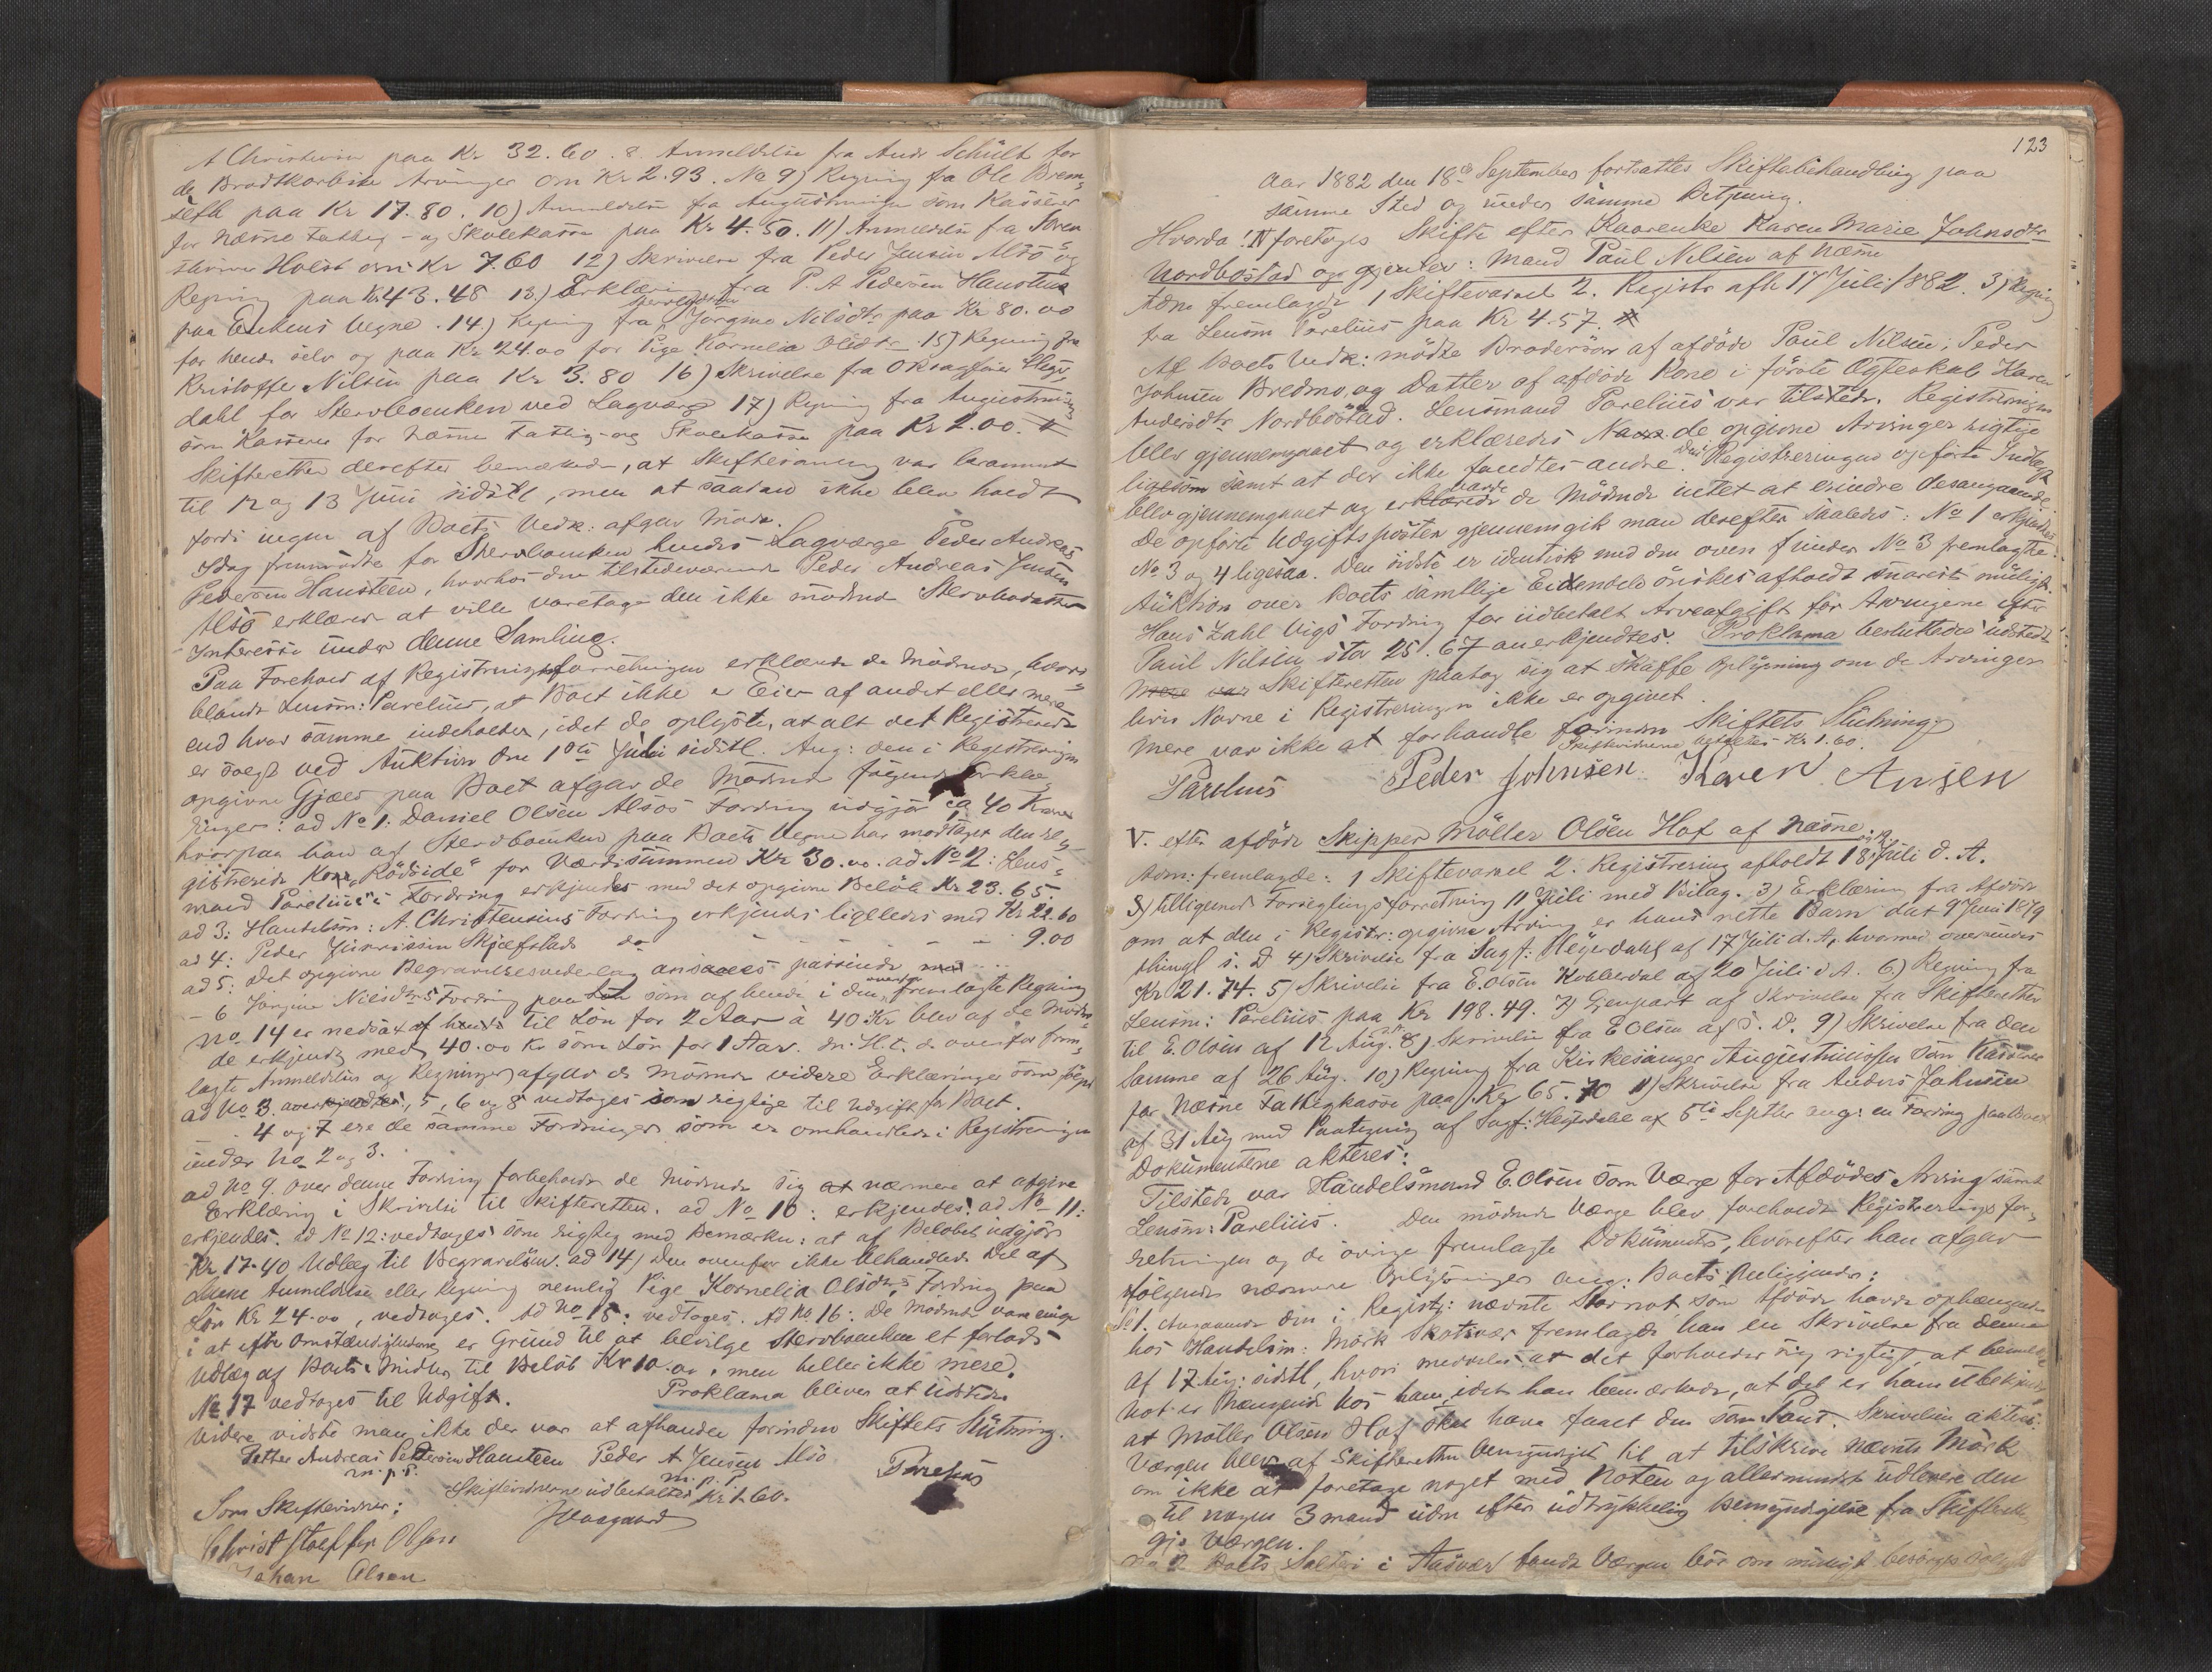 A Christensen paa Kr 32.60. 8. Anmeldelse fra Andr Schült for
de Brodtkorbske Arvinger om Kr 2.93. No 9) Regning fra Ole Brem-
seth paa Kr 17.80. 10) Anmeldelse fra Augustinussen som Kasserer
for Næsne Fattig- og Skolekasse paa Kr 4.50. 11) Anmeldelse fra Soren-
skriver Holst om Kr 7.60 12) Skrivelse fra Peder Jensen Alsö og
Regning paa Kr 43.48 13.) Erklæring fra P. A Pedersen Hausteen
paa Enkens Vegne. 14.) Regning fra Jörgine Nilsdtr paa Kr 80.00
for hende selv og paa Kr 24.00 for Pige Kornelia Olsdtr. 15) Regning fra
Kristoffer Nilsen paa Kr 3.80 16) Skrivelse fra ORsagfører Heyer-
dahl for Stervboenken ved Lagværge 17) Regning fra Augustinussen
som Kasserer for Næsne Fattig- og Skolekasse paa Kr 2.00. #
Skifteretten derefter bemærkede, at Skiftesamling var berammet
til 12 og 13 Juni sidstl, men at saadan ikke blev holdt
fordi ingen af Boets Vedk: afgav Møde.
Idag fremmødte for Stervboenken hendes Lagværge Peder Andreas
Pedersen Hausteen, hvorhos den tilstedeværende Peder Andreas Jensen
Alsö erklærer at ville varetage den ikke mødende Stervbodatters
Interesse under denne Samling.
Paa Forehold af Registreringsforretningen erklærede de Mödende, hvori-
blandt Lensm: Parelius, at Boet ikke er Eier af andet eller mere
end hvad samme indeholder, idet de oplyste, at alt det Registrerede
er solgt ved Auktion den 10de Juli sidstl. Ang: den i Registreringen
opgivne Gjæld paa Boet afgav de Mödende følgende Erklæ-
ringer: ad No 1: Daniel Olsen Alsös Fordring udgjør ca 40 Kroner
hvorpaa han af Stervboenken paa Boets Vegne har modtaget den re-
gistrerede Ko "Rödside" for Værdisummen Kr 30.00. ad No 2: Lens-
mand Parelius's Fordring erkjendes med det opgivne Belöb Kr 23.65.
ad 3: Handelsm: A. Christensens Fordring erkjendes ligeledes med Kr 22.60
ad 4: Peder Skjæfstads do - - - - 9.00
ad 5: Det opgivne Begravelsesvederlag ansaaes passende
- 6 Jörgine Nilsdtrs Fordring paa Lön som af hende i den ovenfor fremlagte Regning
No 14 er nedsat til Lön for 2 Aar à 40 Kr blev af de Möden-
de erkjendt med 40.00 Kr som Lön for 1 Aar. de ovenfor frem-
lagte Anmeldelser og Regninger afgav de Mödende videre Erklæringer som følger
ad No 3. , 5, 6 og 8 vedtoges som rigtige til Udgift for Boet.
- 4 og 7 ere de samme Fordringer som er omhandlede i Registreringen
under No 2 og 3.
ad No 9. Over denne Fordring forbeholdt de Mödende sig nærmere at afgive
Erklæring i Skrivelse til Skifteretten. ad No 10: erkjendes. ad No 11:
erkjendes. ad No 12: vedtoges som rigtig med Bemærkn: at af Belöbet udgjör
Kr 17.40 Udlæg til Begravelsen. ad 14) Den ovenfor ikke behandlede Del af
denne Anmeldelse eller Regning nemlig Pige Kornelia Olsdtrs Fordring paa
Lön Kr 24.00, vedtoges. Ad No 15: vedtoges. Ad No 16: De Mödende vare enige
i at efter Omstændighederne er Grund til at bevilge Stervboenken et forlods
Udlæg af Boets Midler til Belöb Kr 10.00, men heller ikke mere.
No 17 vedtoges til Udgift. Proklama bliver at udstede
Videre vidste man ikke der var at afhandle forinden Skiftets Slutning.
Petter Andreas Pettersen Hausteen Peder A Jensen Alsö Parelius
m. p. P. m. p. P.
Skiftevidnerne udbetaltes Kr 1.60.
Som Skiftevidner:
Christstoffer Olsen
Johan Olsen
123
Aar 1882 den 18de September fortsattes Skiftebehandling paa
samme Sted og under samme Betjening.
Hvorda: IV foretoges Skifte efter Kaarenke Karen Marie Johnsdtr
Nordbostad og gjenlev: Mand Paul Nilsen af Næsne
Adm fremlagde 1 Skiftevarsel 2. Registr afh 17 Juli 1882. 3) Regning
fra Lensm Parelius paa Kr 4.57. #
Af Boets Vedk: mødte Brodersøn af afdöde Paul Nilsen, Peder
Johnsen Bredmo, og Datter af afdöde Kone i første Ægteskab Karen
Andersdtr Nordbostad. Lensmand Parelius var tilstede. Registreringen
blev gjennemgaaet og erklæredes de opgivne Arvinger rigtige
ligesom samt at der ikke fandtes andre. Registreringens opførte Indtægt
blev gjennemgaaet og havde de Mödende intet at erindre desangaaende
De opførte Udgiftsposter gjennemgik man derefter saaledes: No 1 erkjendes
No 3 og 4 ligesaa. Den sidste er identisk med den oven under No 3 fremlagte.
Auktion over Boets samtlige Eiendele önskes afholdt snarest muligt.
Hans Zahl Vigs Fordring for udbetalt Arveafgift for Arvingerne efter
Paul Nilsen stor 25.67 anerkjendtes. Proklama besluttedes udstedt
Skifteretten paatog sig at skaffe Oplysning om de Arvinger
hvis Navne i Registreringen ikke er opgivet.
Mere var ikke at forhandle forinden Skiftets Slutning
Skiftevidnerne betaltes Kr 1.60.
Parelius Peder Johnsen. Karen Ansen
V. efter afdöde Skipper Möller Olsen Hof af Næsne.
Adm: fremlagde: 1 Skiftevarsel 2. Registrering afholdt 18 Juli d. A.
3) tilligemed Forseglingsforretning 11 Juli med Bilag. 3) Erklæring fra Afdöde
om at den i Registr: opgivne Arving er hans rette Barn dat 9 Juni 1879
thingl s. D 4) Skrivelse fra Sagf: Heyerdahl af 17 Juli d. A. hvormed oversendes
Kr 21.74. 5) Skrivelse fra E. Olsen Kobberdal af 20 Juli d A. 6.) Regning fra
Lensm: Parelius paa Kr 198.49. 7) Gjenpart af Skrivelse fra Skifteretten
til E. Olsen af 12 Aug. 8) Skrivelse fra E Olsen af s. D. 9) Skrivelse fra den
samme af 26 Aug. 10) Regning fra Kirkesanger Augustinussen som Kasserer
for Næsne Fattigkasse paa Kr 65.70 11) Skrivelse fra Anders Johnsen
af 31 Aug med Paategning af Sagf: Heyerdahl af 5te Septbr ang: en Fordring paa Boet
Dokumenterne akteres:
Tilstede var Handelsmand E. Olsen som Værge for Afdödes Arving samt
Lensm: Parelius. Den mödende Værge blev foreholdt Registreringsfor-
retningen og de övrige fremlagte Dokumenter, hvorefter han afgav
følgende nærmere Oplysninger ang: Boets Beliggende:
No 1. Angaaende den i Registr: nævnte Stornot som Afdöde havde ophængende
hos Handelsm: Mörk Skotsvær fremlagde han en Skrivelse fra denne
af 17 Aug: sidstl, hvori meddeles at det forholder sig rigtigt, at bemeldte
Not er hængende hos ham, idet han bemærkede, at det er ham ubekjendt
at Möller Olsen Hof skal have faaet den som Pant. Skrivelsen aktens.
Værgen blev af Skifteretten bemyndiget til at tilskrive nævnte Mörk
om ikke at foretage noget med Noten og allermindst udlevere den
til nogen 3 mand uden efter udtrykkelig Bemyndigelse fra Skifteretten
gj: Værgen.
No 2 Boets i Aasvær fandt Værgen bör om muligt besörges solgt